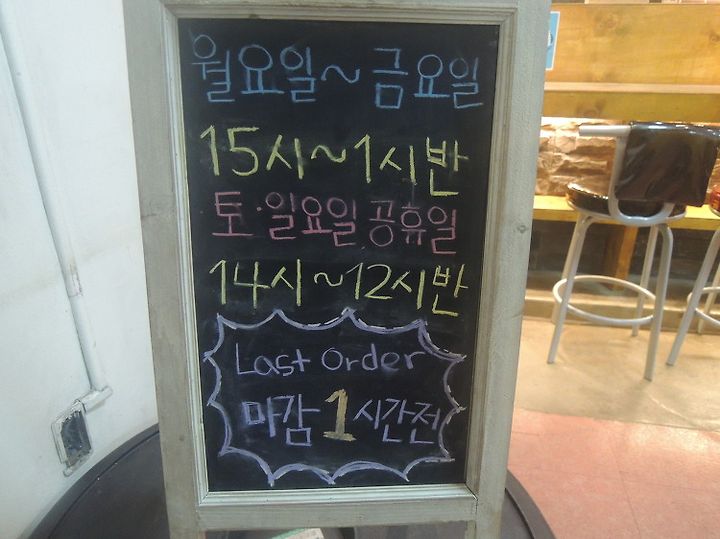 월요일~금요일
15시~1시반
토·일요일 공휴일
14시~12시반
Last Order
마감 1시간전